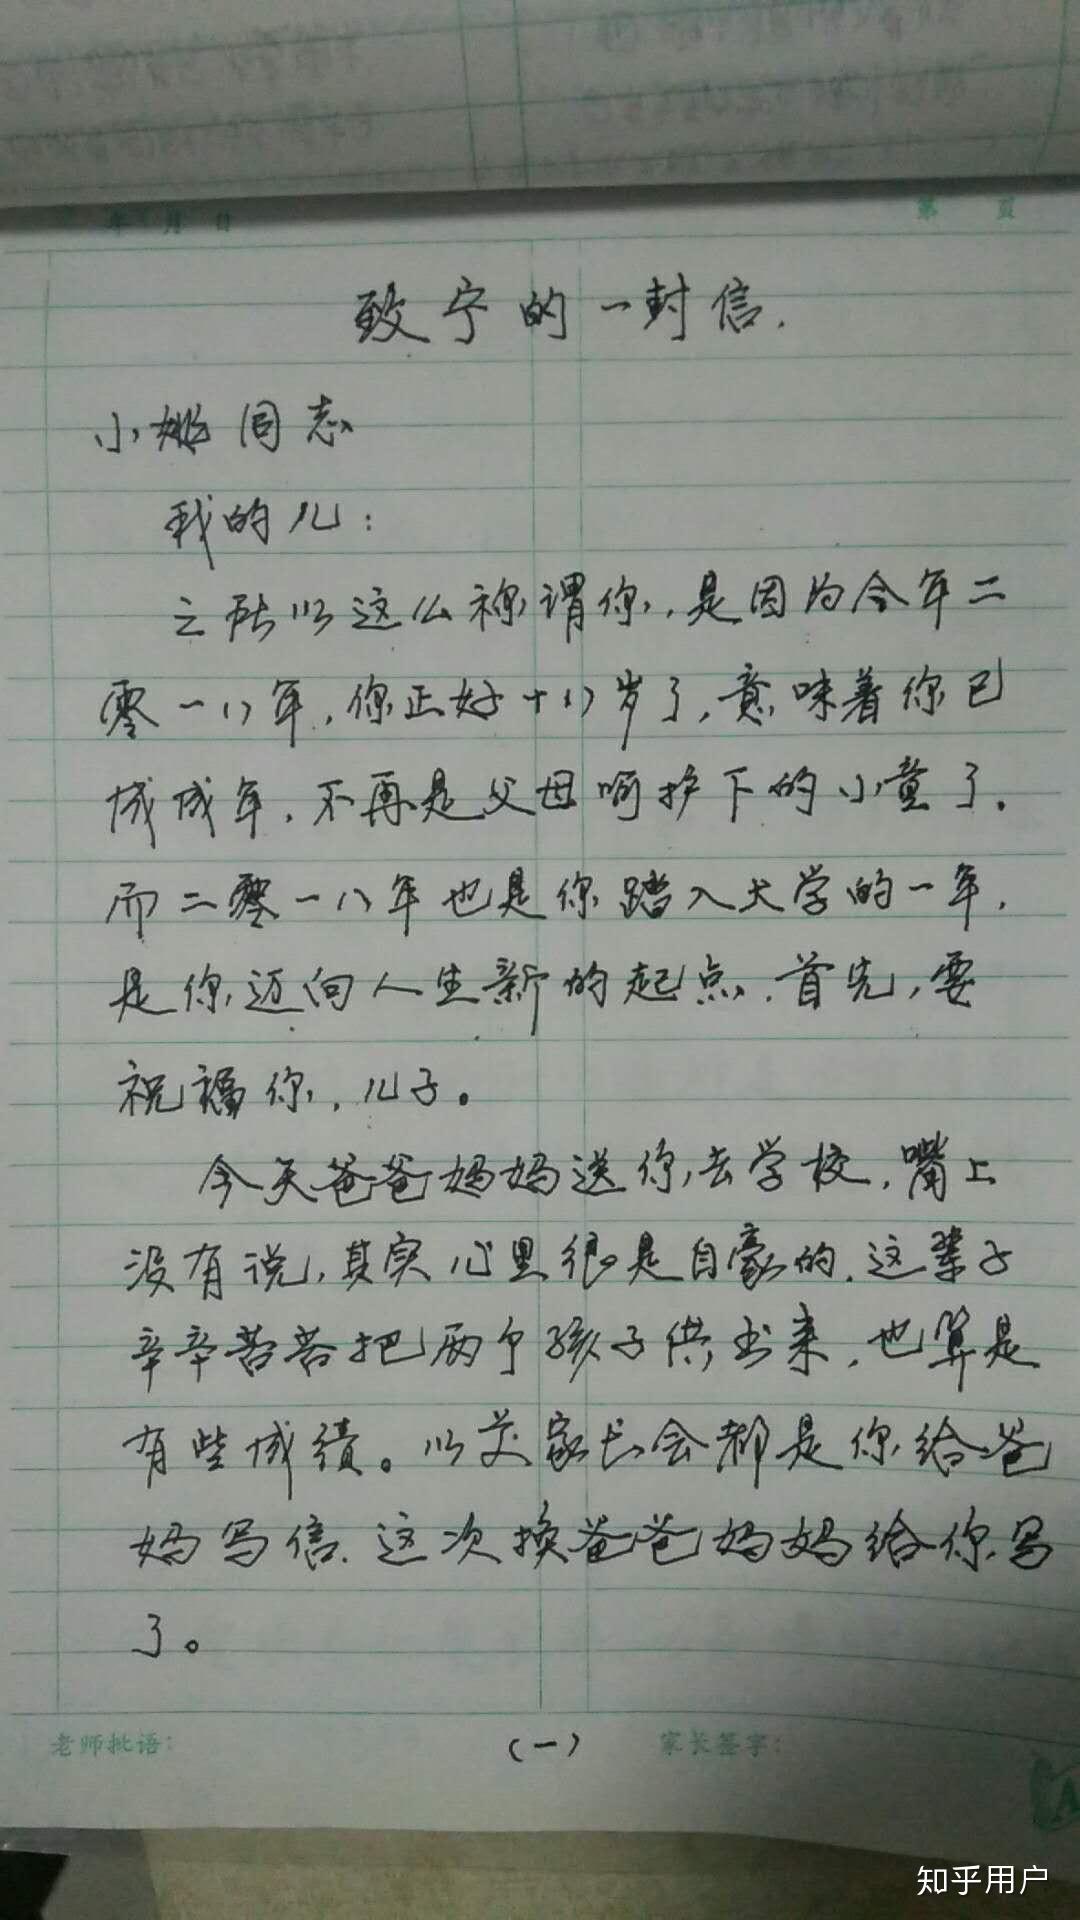 年 月 日 第 页
致宁的一封信.
小姚同志
我的儿：
之所以这么称谓你，是因为今年二
零一八年，你正好十八岁了，意味着你已
成成年，不再是父母呵护下的小童了。
而二零一八年也是你踏入大学的一年，
是你迈向人生新的起点．首先，要
祝福你，儿子。
今天爸爸妈妈送你去学校，嘴上
没有说，其实心里很是自豪的．这辈子
辛辛苦苦把两个孩子供出来，也算是
有些成绩。以前家长会都是你给爸
妈写信．这次换爸爸妈妈给你写
了。
老师批语： （一） 家长签字：
知乎用户